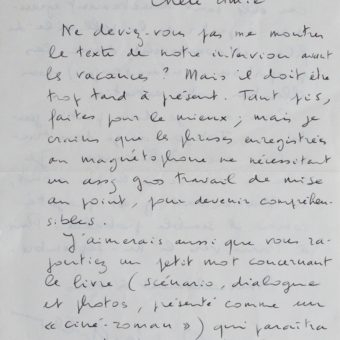 Chère amie
Ne deviez-vous pas me montrer
le texte de notre interview avant
les vacances ? Mais il doit être
trop tard à présent. Tant pis,
faites pour le mieux ; mais je
crains que les phrases enregistrées
au magnétophone ne nécessitent
un assez gros travail de mise
au point, pour devenir compréhen-
sibles.
J'aimerais aussi que vous ra-
joutiez un petit mot concernant
le livre (scénario, dialogue
et photos, présenté comme un
« ciné-roman ») qui paraîtra